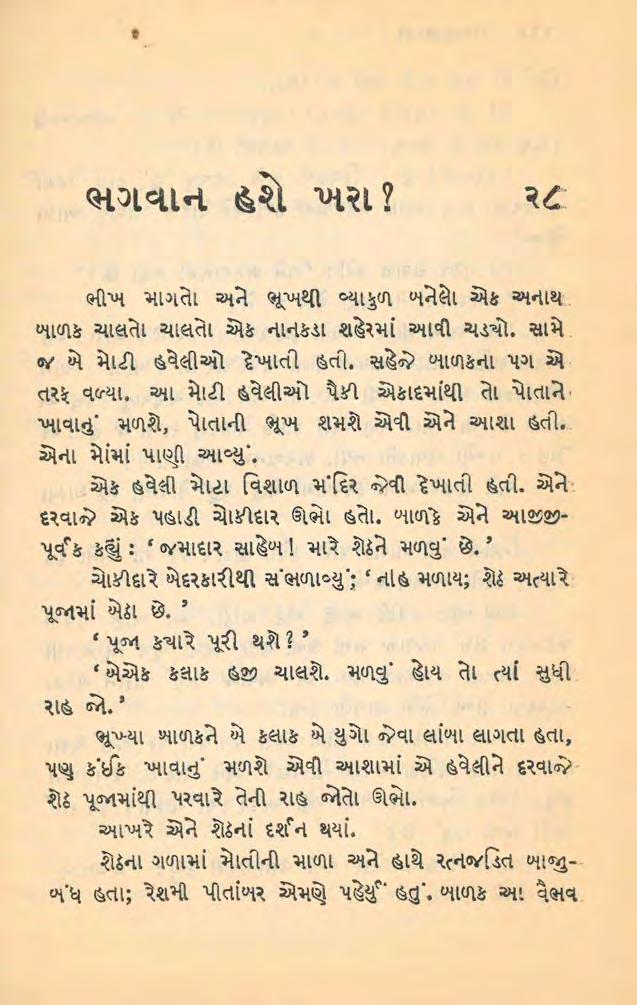 ભગવાન હશે ખરા? ૨૮
ભીખ માગતો અને ભૂખથી વ્યાકુળ બનેલો એક અનાથ
બાળક ચાલતો ચાલતો એક નાનકડા શહેરમાં આવી ચડ્યો. સામે
જ બે મોટી હવેલીઓ દેખાતી હતી. સહેજે બાળકના પગ એ
તરફ વળ્યા. આ મોટી હવેલીઓ પૈકી એકાદમાંથી તો પોતાને
ખાવાનું મળશે, પોતાની ભૂખ શમશે એવી એને આશા હતી.
એના મોંમાં પાણી આવ્યું.
એક હવેલી મોટા વિશાળ મંદિર જેવી દેખાતી હતી. એને
દરવાજે એક પહાડી ચોકીદાર ઊભો હતો. બાળકે એને આજીજી-
પૂર્વક કહ્યું : ‘જમાદાર સાહેબ! મારે શેઠને મળવું છે.’
ચોકીદારે બેદરકારીથી સંભળાવ્યું; ‘નહિ મળાય; શેઠ અત્યારે
પૂજામાં બેઠા છે.’
‘પૂજા ક્યારે પૂરી થશે?’
‘બેએક કલાક હજી ચાલશે. મળવું હોય તો ત્યાં સુધી
રાહ જો.’
ભૂખ્યા બાળકને બે કલાક બે યુગો જેવા લાંબા લાગતા હતા,
પણ કંઈક ખાવાનું મળશે એવી આશામાં એ હવેલીને દરવાજે
શેઠ પૂજામાંથી પરવારે તેની રાહ જોતો ઊભો.
આખરે એને શેઠનાં દર્શન થયાં.
શેઠના ગળામાં મોતીની માળા અને હાથે રત્નજડિત બાજુ-
બંધ હતા; રેશમી પીતાંબર એમણે પહેર્યું હતું. બાળક આ વૈભવ